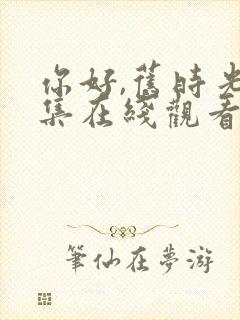 你好,舊時光
集在綫觀看
筆仙在夢游